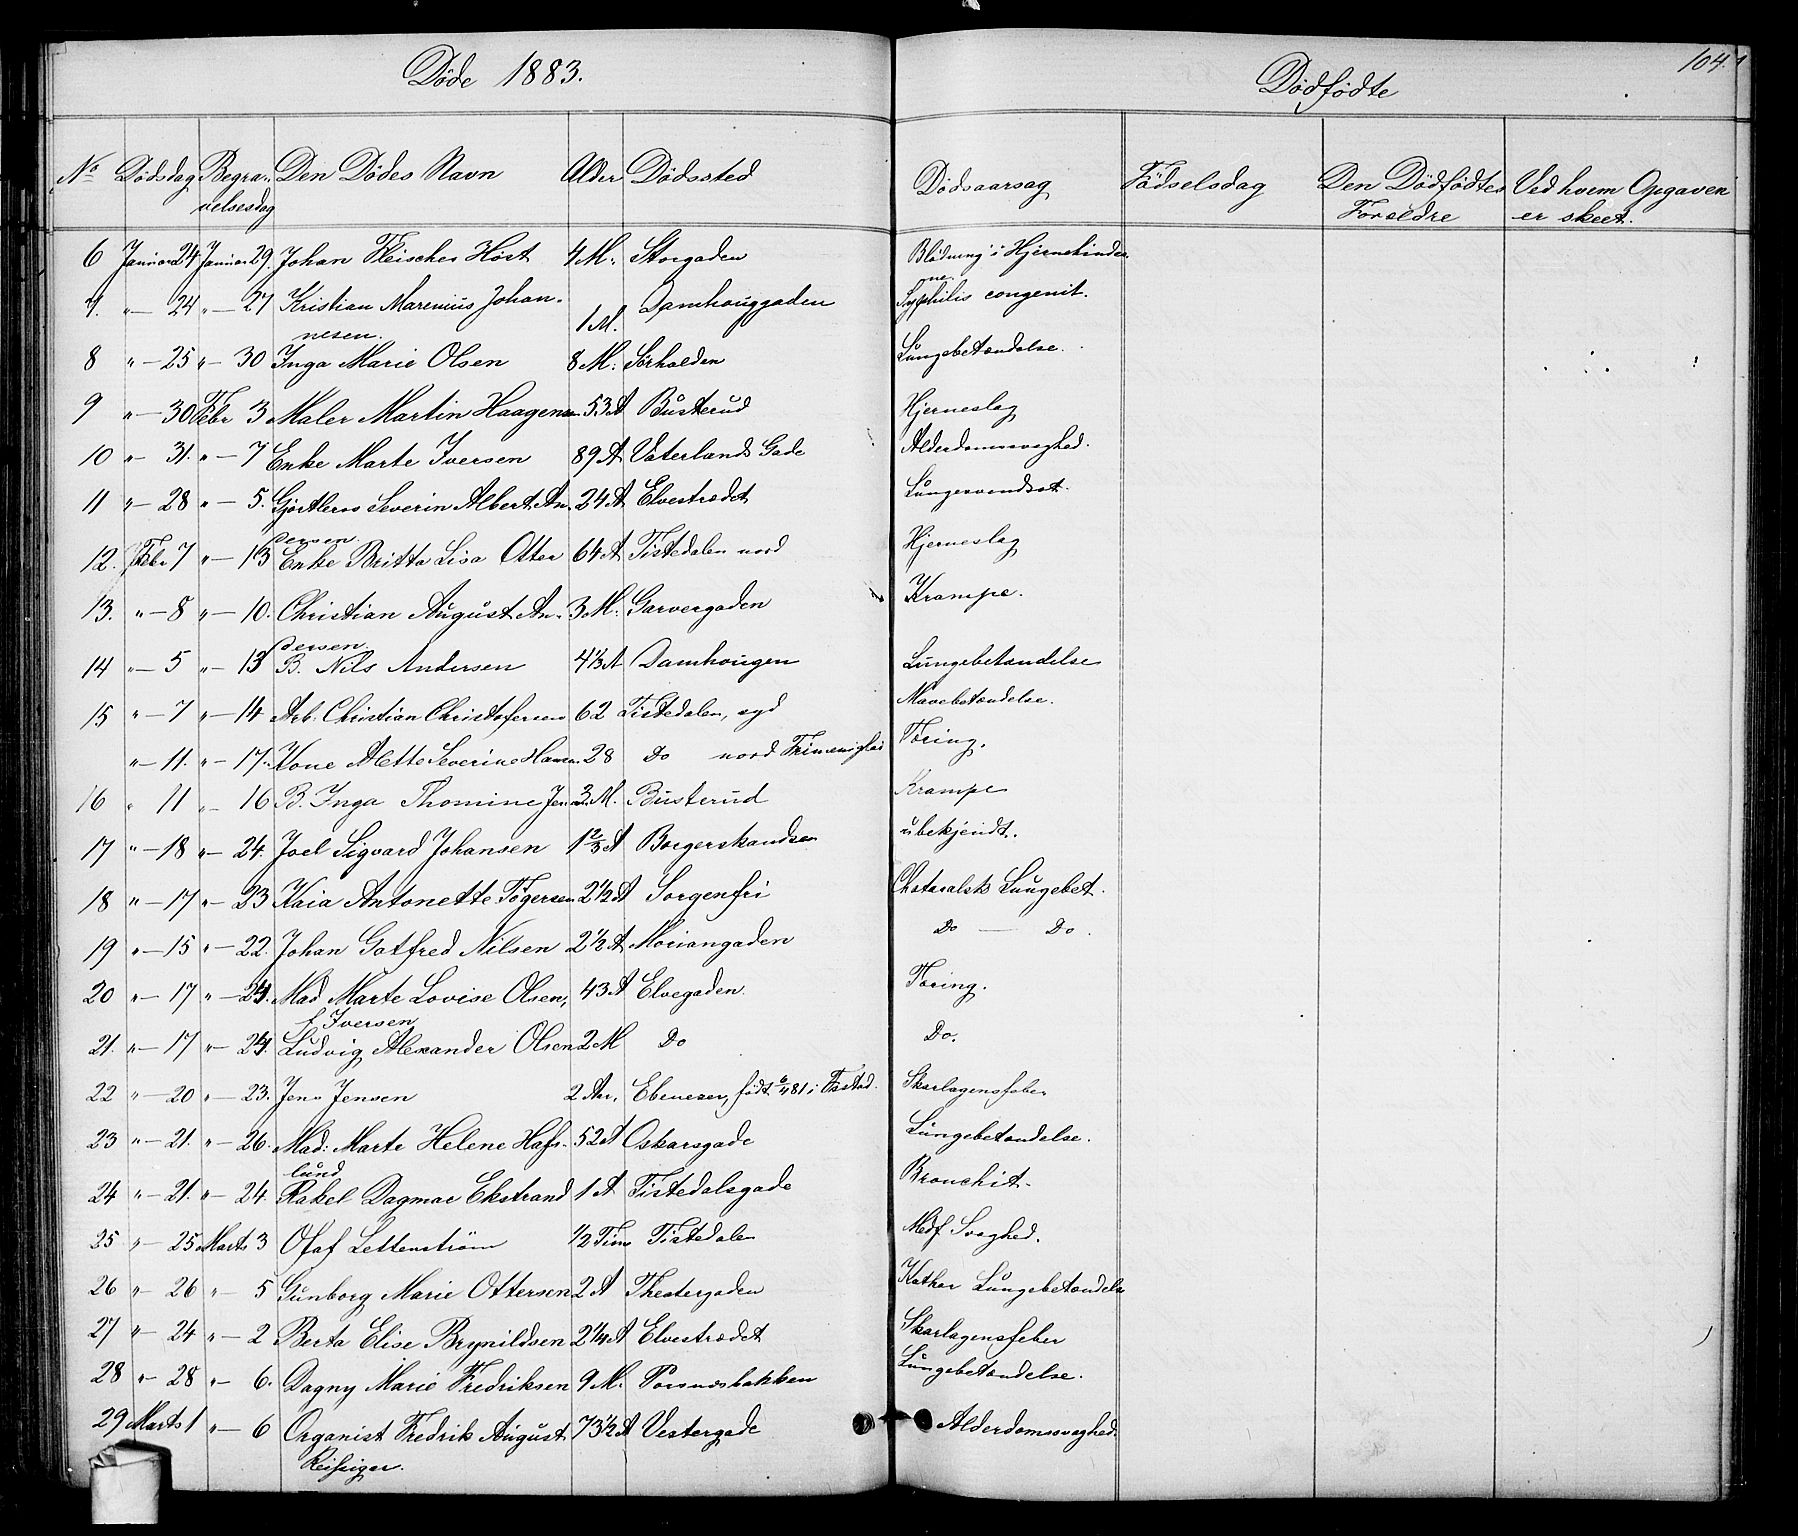 Døde 1883.
Dødfødte
104.
No Dødsdag Begra- Den Dødes Navn Alder Dødssted Dødsaarsag Fødselsdag Den Dødfødtes Ved hvem Opgaven
velsesdag Foreldre er skeet.
6 Januar 24 Januar 29. Johan Fleischer Höst 4 M. Storgaden Blødning i Hjernehinder
ne.
7. " — 24 " — 27 Kristian Marenius Johan- 1 M. Damhouggaden Syphilis congenit.
nesen.
8 " — 25 " — 30 Inga Marie Olsen 8 M. Sørhalden Lungebetændelse.
9 " — 30 Febr 3 Maler Martin Haagensen 53 A Busterud Hjerneslag
10 " — 31. " — 7 Enke Marte Iversen 89 A Vaterlands Gade Alderdomssvaghed.
11 " — 28 " — 5. Gjørtlersv Severin Albert An- 24 A Elvestrædet Lungesvindsot.
dersen
12. Febr 7 " — 13 Enke Britta Lisa Otter 64 A Tistedalen nord Hjerneslag
13. " — 8 " — 10. Christian August An- 3 M. Garvergaden Krampe.
dersen
14 " — 5 " — 13 B. Nils Andersen 4 1/3 A Damhougen Lungebetændelse
15 " — 7 " — 14 Arb. Christian Christofersen 62 Tistedalen, syd Mavebetændelse.
" — 11. " — 17. Kone Mette Severine Hansen 28 Do nord Frimenighed Tæring.
16 " 11 " — 16 B. Inga Thomine Jensen 3 M. Busterud Krampe
17 " — 18 " — 24. Joel Sigvard Johansen 1 2/3 A Borgerskandsen ubekjendt.
18 " — 17 " — 23 Kaia Antonette Tøgersen 2 1/2 A Sorgenfri Chataralsk Lungebet.
19 " — 15 " — 22. Johan Gotfred Nilsen 2 1/2 A Moriangaden Do — Do.
20 " — 17 " — 24. Mad Marte Lovise Olsen, 43 A Elvegaden. Tæring.
f. Iversen
21. " — 17 " — 24. Ludvig Alexander Olsen 2 M Do Do.
22 " — 20 " — 23. Jens Jensen 2 Aar. Ebenezer, født 6/4 81 i Fsstad. Skarlagensfeber
23 " — 21. " — 26. Mad: Marte Helene Hafs- 52 A Oskarsgade Lungebetændelse.
lund
24 " — 21. " — 24. Rakel Dagmar Ekstrand 1 A Tistedalsgade Bronchit.
25 " — 25 Marts 3 Olaf Lettenstrøm 1/2 Time Tistedalen Medf Svaghed.
26 " — 26 " — 5 Gunborg Marie Ottersen 2 A Theatergaden Kathar Lungebetændelse
27 " — 24 " — 2 Berta Elise Brynildsen 2 1/4 A Elvestrædet Skarlagensfeber
28 " — 28 " — 6. Dagny Marie Fredriksen 9 M. Porsnesbakken Lungebetændelse.
29 Marts 1 " — 6 Organist Fredrik August 73 1/2 A Vestergade Alderdomssvaghed.
Reissiger.